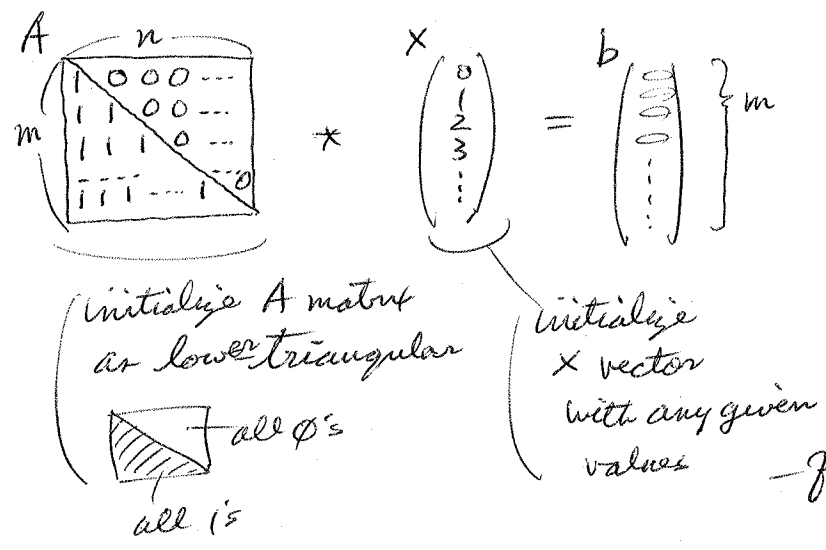 A n X b
m 1 0 0 0 --- 0
1 1 0 0 --- 1
1 1 1 0 --- * 2 = m
----- 3
1 1 1 ---- 1 0 ...
initialize A matrix
as lower triangular
all 0's
all 1's
initialize
X vector
with any given
values